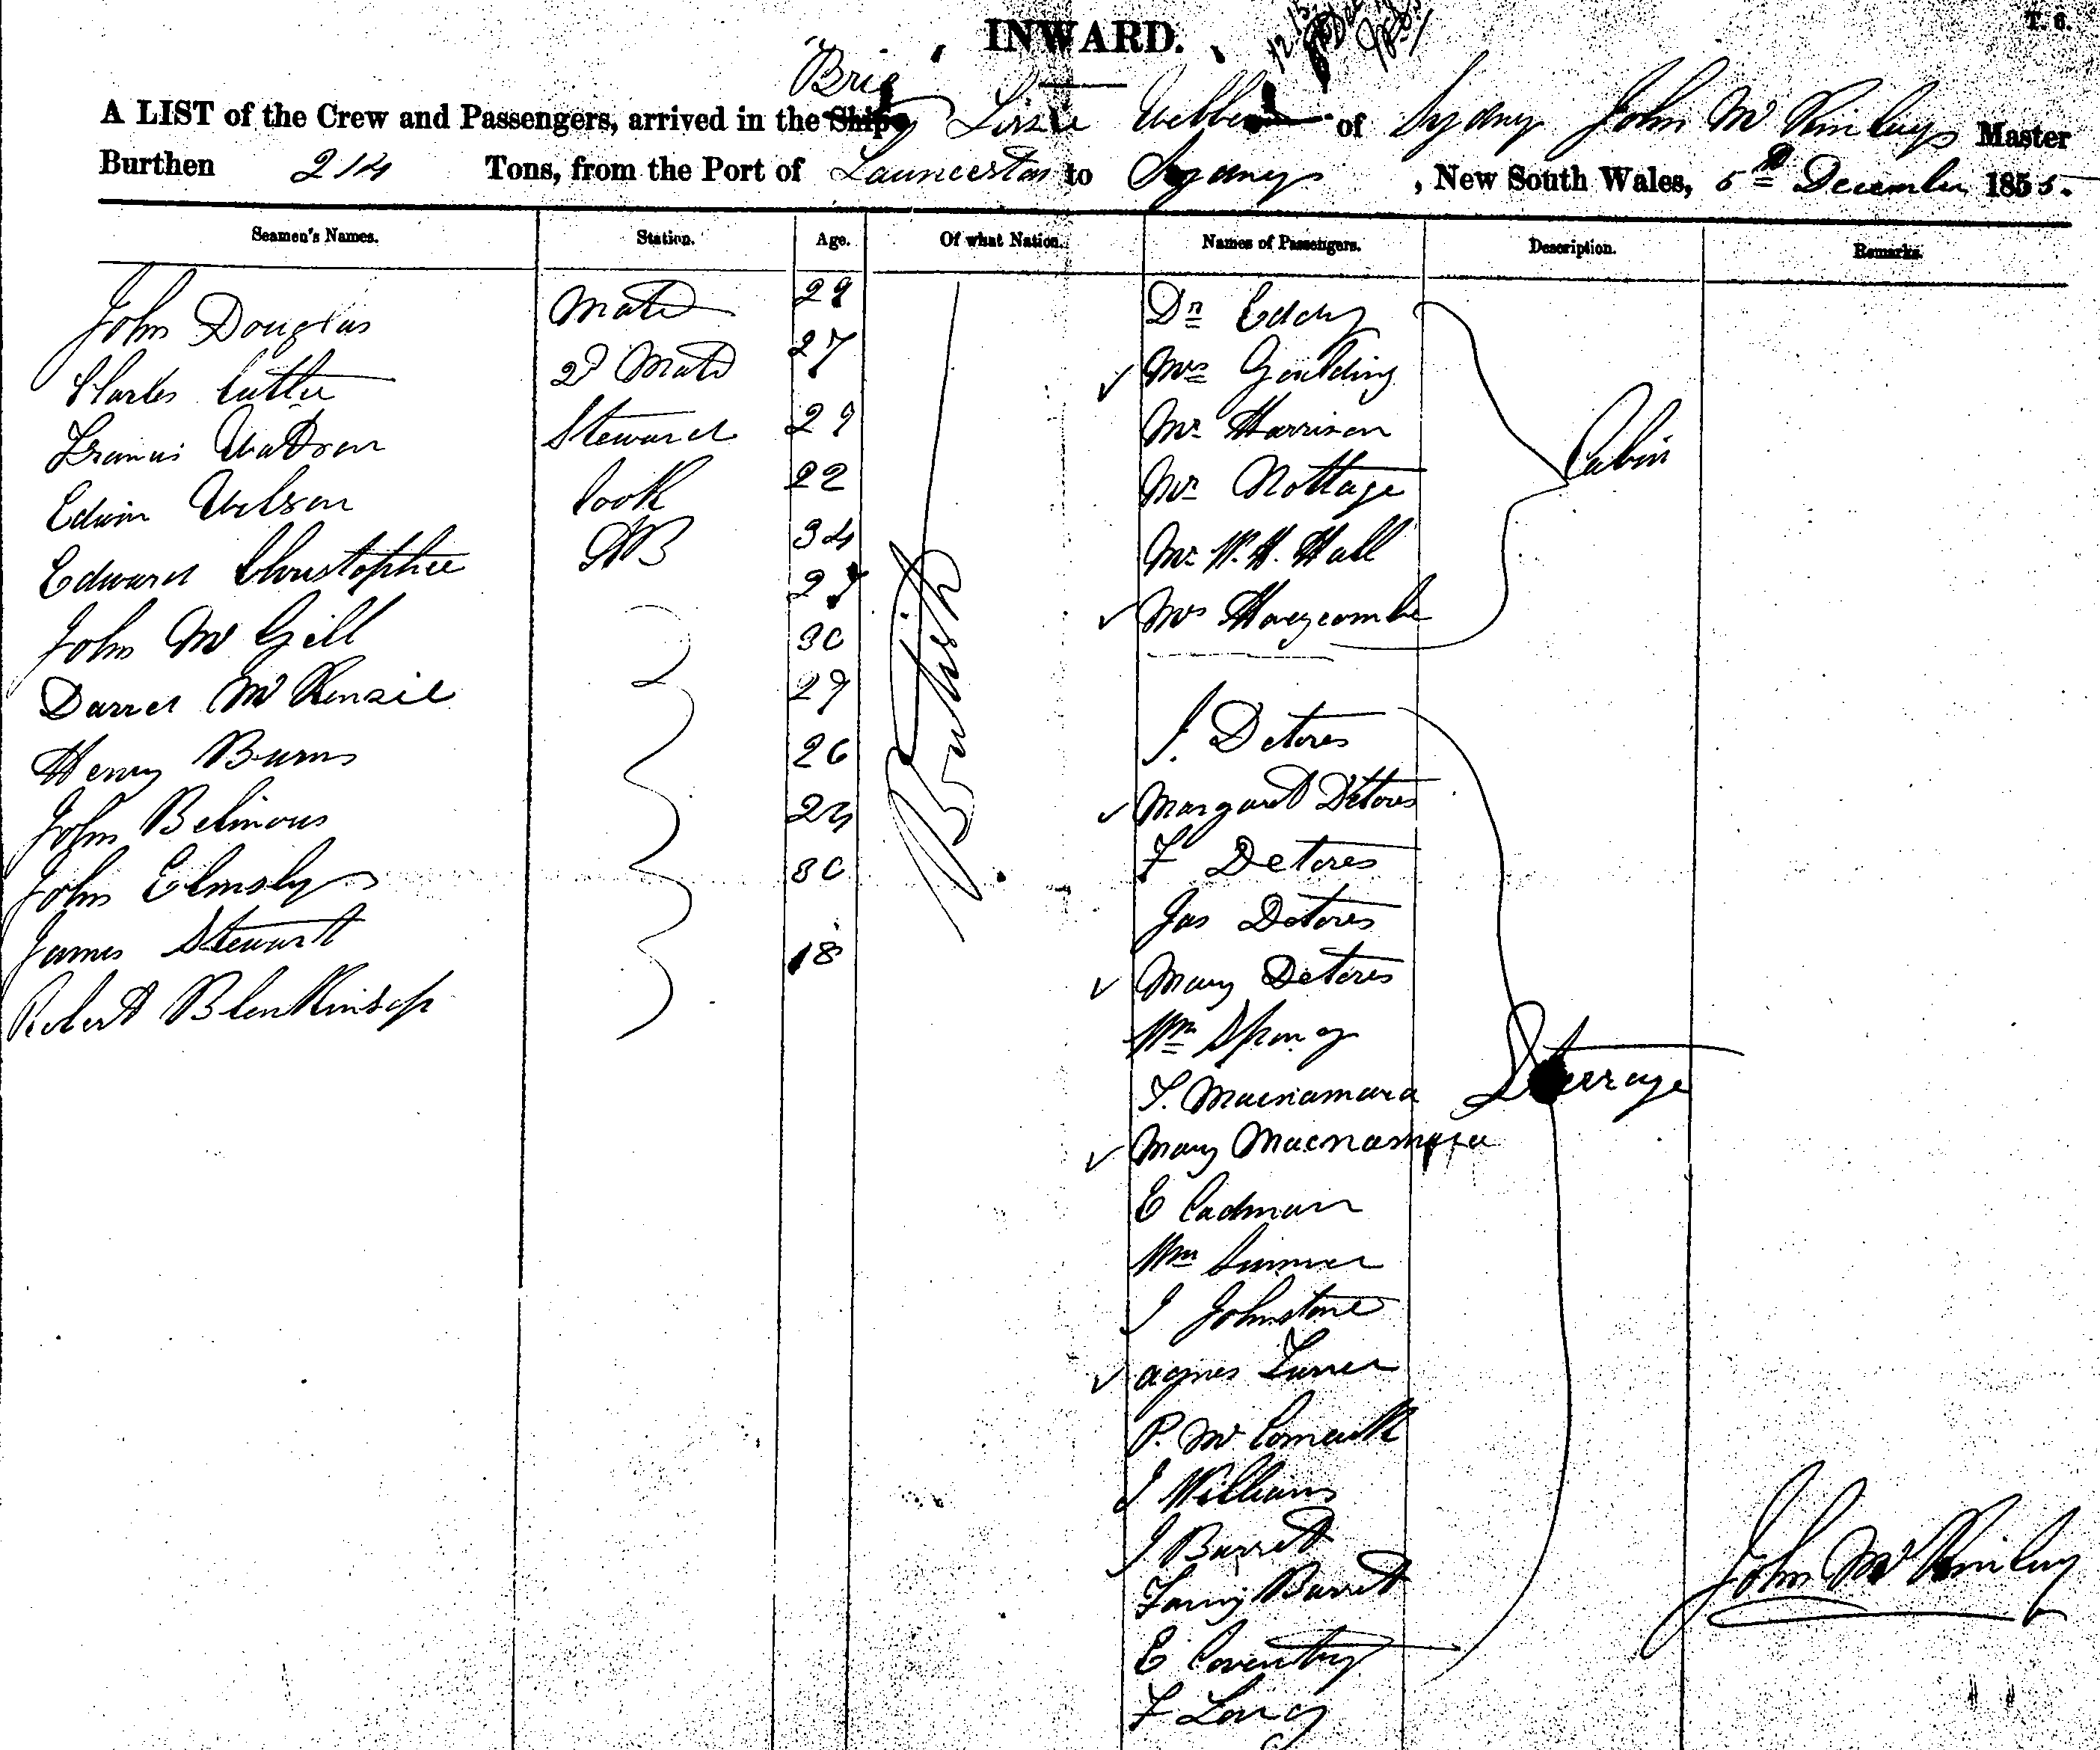 INWARD.
T. 6.
Brig
A LIST of the Crew and Passengers, arrived in the Ship Lizzie Webber of Sydney John Mc Kinlay Master
Burthen 214 Tons, from the Port of Launceston to Sydney, New South Wales, 5th December 1855.
Seamen's Names. Station. Age. Of what Nation. Names of Passengers. Description. Remarks.
John Douglas Mate 29 British Dr Eddy Cabin
Charles Cutter 2d Mate 27 Mrs Goulding
Francis Watson Steward 29 Mr Harrison
Edwin Wilson Cook 22 Mr Nottage
Edward Christopher AB 34 Mr W. H. Hall
John Mc Gill 27 Mrs Honeycombe
Mc Kenzie 30
Henry Burns 29 J. Detores Steerage
John 26 Margaret Detores
John Elmsly 24 F Detores
James Stewart 30 Jas Detores
Robert Blenkinsop 18 Mary Detores
Wm
T. Macnamara
Mary Macnamara
E Cadman
Wm
J Johnstone
Agnes Turner
P. Mc
J Williams
J Barrett
Fanny Barrett
E Coventry
F
John Mc Kinlay